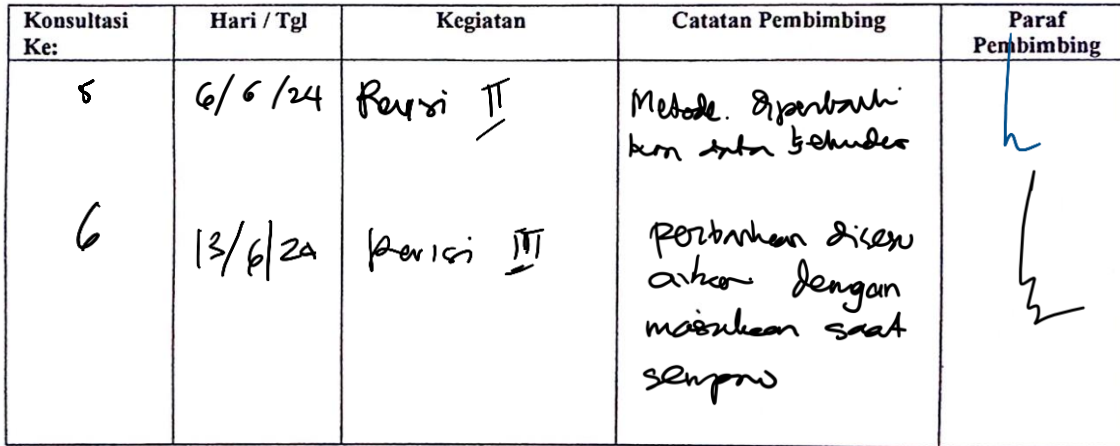 Konsultasi Ke:
Hari / Tgl
Kegiatan
Catatan Pembimbing
Paraf Pembimbing
5 6/6/24 Revisi II Metode. diperbaiki
kan data sekunder
6 13/6/24 Revisi III perbaikan disesu
aikan dengan
masukan saat
sempro